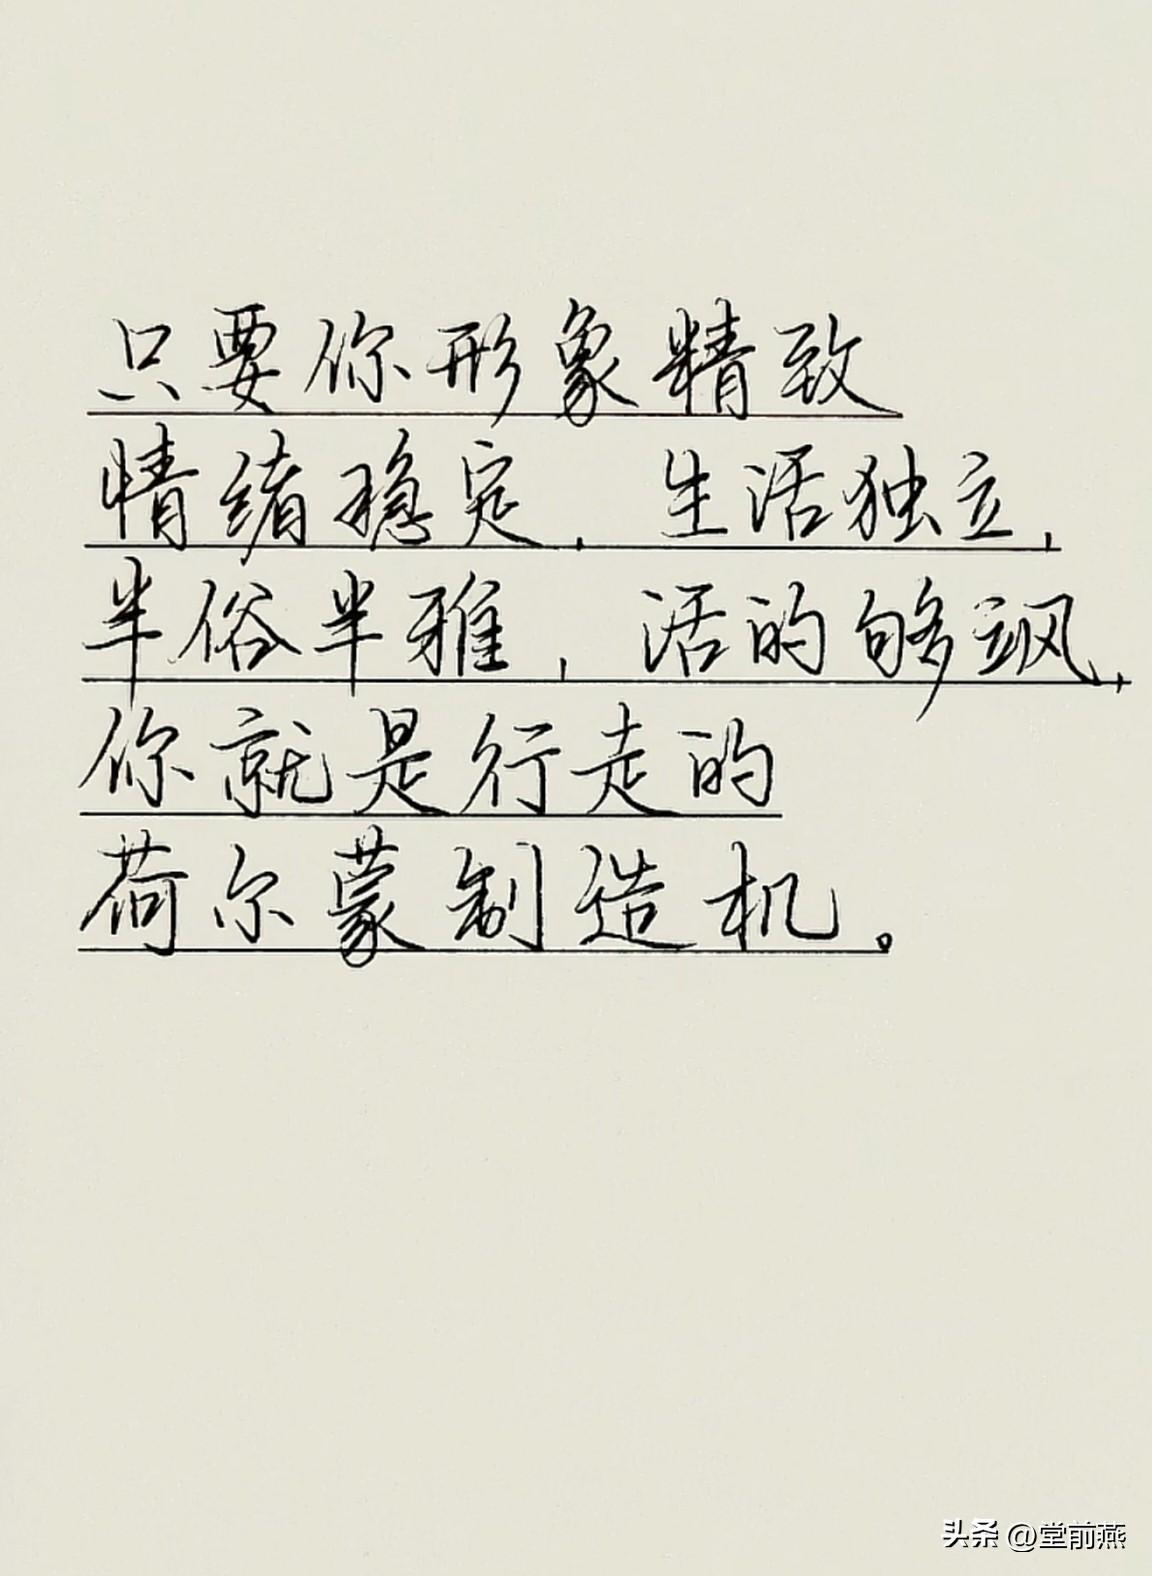 只要你形象精致
情绪稳定，生活独立，
半俗半雅，活的够飒，
你就是行走的
荷尔蒙制造机。
头条 @堂前燕